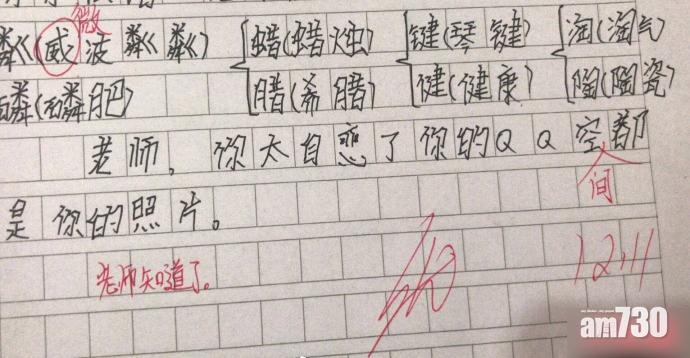 微
粼(威波粼粼) 蜡(蜡烛) 键(琴键) 淘(淘气
磷(磷肥) 腊(希腊) 健(健康) 陶(陶瓷)
老师,你太自恋了你的QQ空都
间
是你的照片。
老师知道了。
12.11
am730